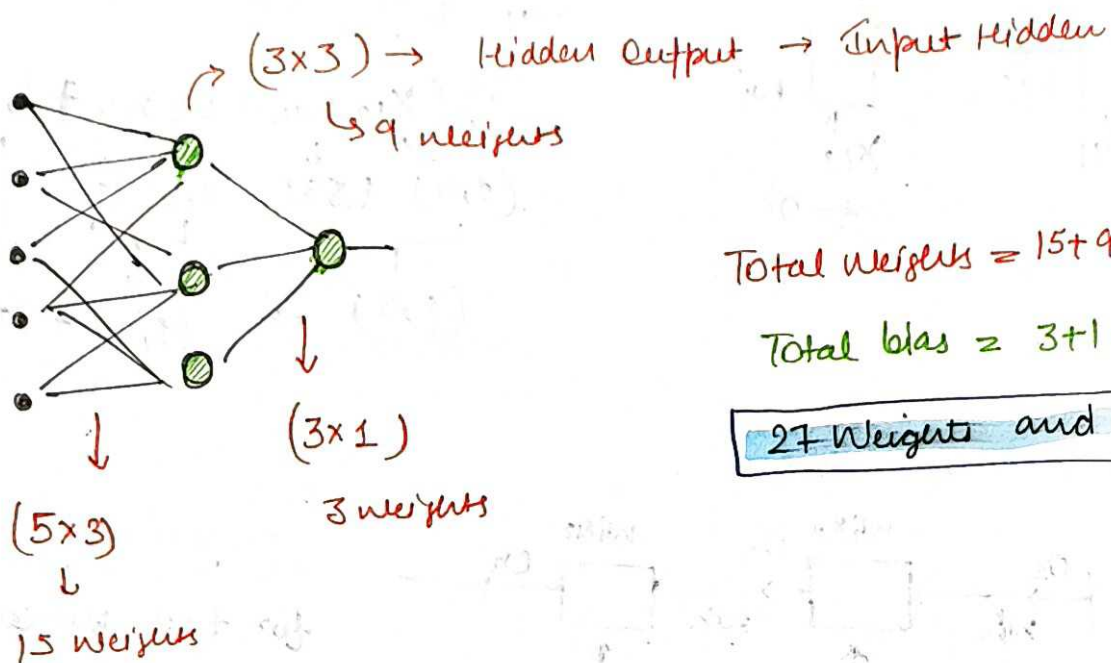 (3×3) → Hidden Output → Input Hidden
↳ 9 weights
Total weights = 15+9
Total bias = 3+1
27 Weights and
(3×1)
3 weights
(5×3)
↓
15 weights